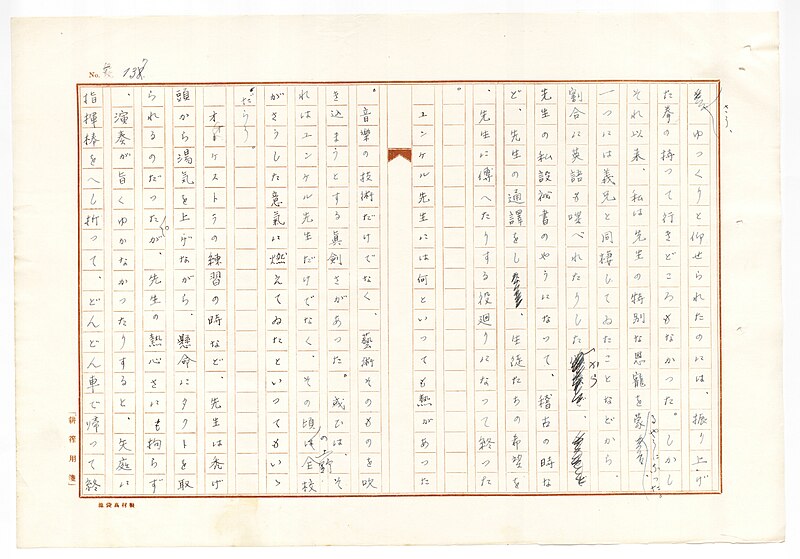 No. 138
さう、
ゆつくりと仰せられたのには、振り上げ
た拳の持つて行きどころもなかつた。しかし
それ以来、私は先生の特別な恩寵を蒙
るやうになつた。
一つには義兄と同棲してゐたことなどから、
割合に英語も喋べれたりした
から
先生の私設秘書のやうになつて、稽古の時な
ど、先生の通譯をし、生徒たちの希望を
先生に傳へたりする役廻りになつて終つた
。
ユンケル先生には何といつても熱があつた
。音樂の技術だけでなく、藝術そのものを吹
き込まうとする真剣さがあつた。或ひは、そ
れはユンケル先生だけでなく、その頃の上野全校
がさうした意氣に燃えてゐたといつてもいゝ
だらう。
オーケストラの練習の時など、先生は禿げ
頭から湯気を上げながら、懸命にタクトを取
られるのだつたが、先生の熱心さにも拘らず
、演奏が旨くゆかなかつたりすると、矢庭に
指揮棒をへし折つて、どんどん車で帰つて終